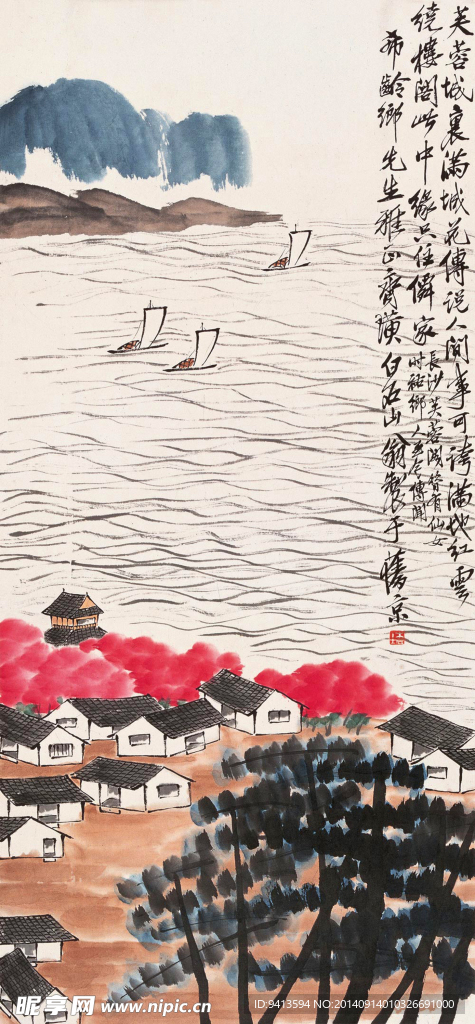 芙蓉城裏滿城花傳說人間事可誇滿地紅雲
繞樓閣此中緣只住儒家
長沙芙蓉
時
希齡鄉先生雅正齊璜白石山翁製于舊京
昵享网 www.nipic.cn
ID:9413594 NO:20140914010326691000